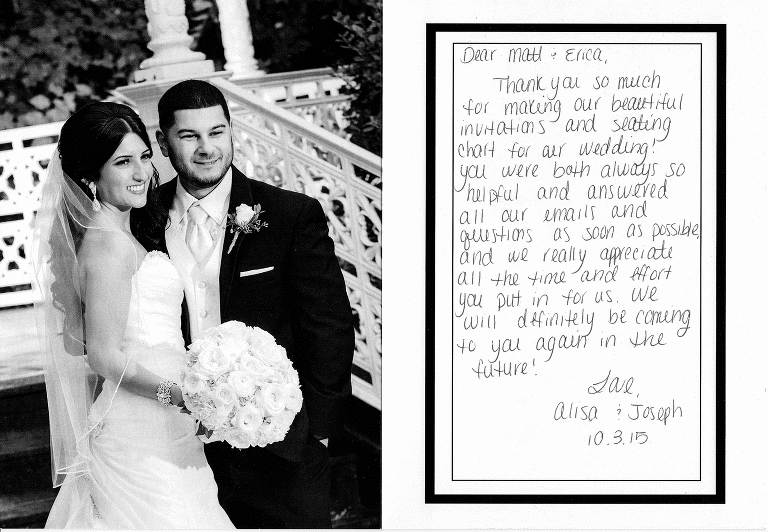 Dear Matt & Erica,
Thank you so much
for making our beautiful
invitations and seating
chart for our wedding!
you were both always so
helpful and answered
all our emails and
questions as soon as possible,
and we really appreciate
all the time and effort
you put in for us. We
will definitely be coming
to you again in the
future!
Love,
Alisa & Joseph
10.3.15